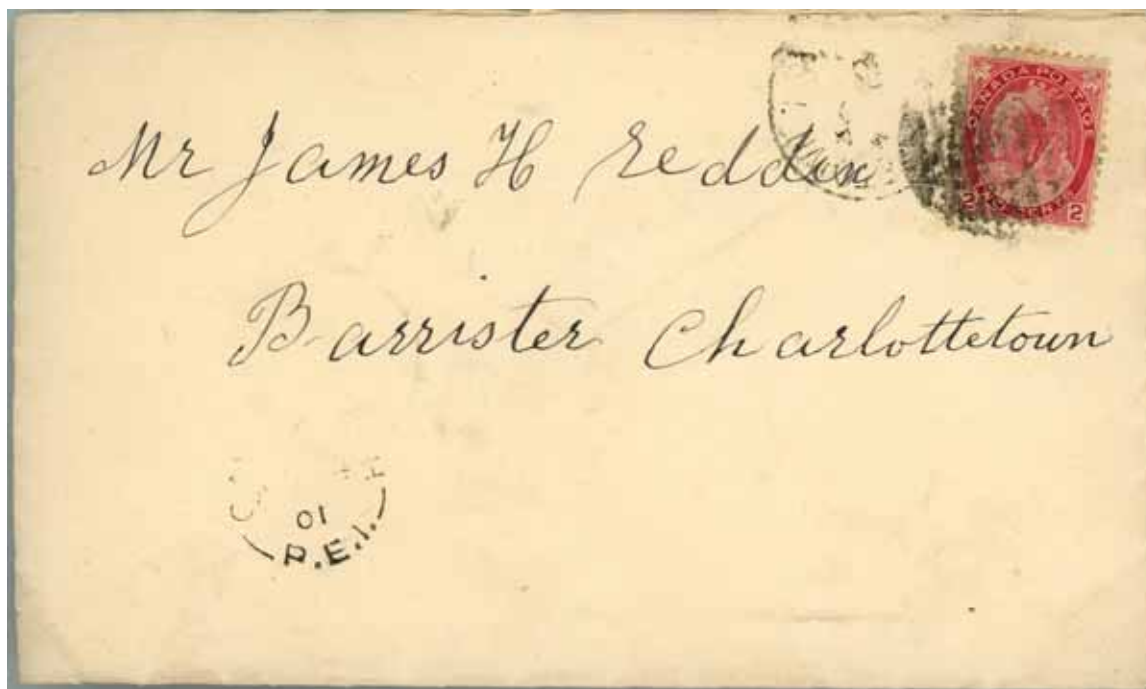 CANADA POSTAGE
2 CENTS 2
Mr James H Reddin
Barrister Charlottetown
01
P.E.I.